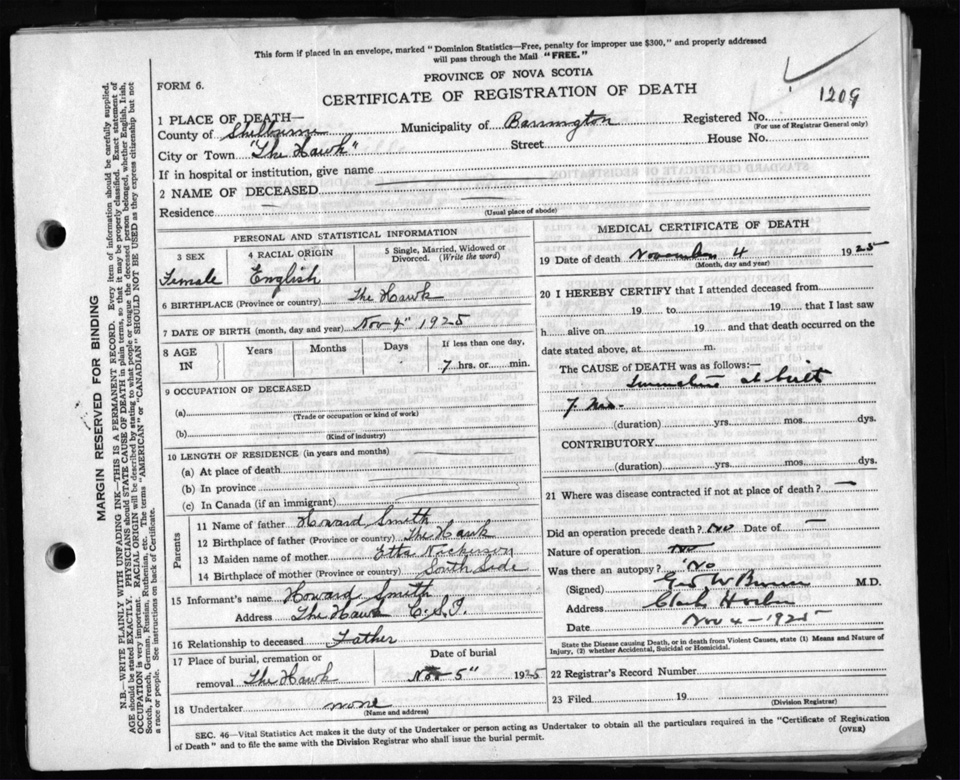 This form if placed in an envelope, marked "Dominion Statistics—Free, penalty for improper use $300," and properly addressed
will pass through the Mail "FREE."
PROVINCE OF NOVA SCOTIA
FORM 6.
CERTIFICATE OF REGISTRATION OF DEATH
1209
1 PLACE OF DEATH—
County of Shelburne Municipality of Barrington Registered No.
(For use of Registrar General only)
City or Town "The Hawk" Street House No.
If in hospital or institution, give name
2 NAME OF DECEASED
Residence
(Usual place of abode)
PERSONAL AND STATISTICAL INFORMATION
3 SEX 4 RACIAL ORIGIN 5 Single, Married, Widowed or Divorced. (Write the word)
Female English
6 BIRTHPLACE (Province or country) The Hawk
7 DATE OF BIRTH (month, day and year) Nov 4" 1925
8 AGE IN Years Months Days If less than one day,
7 hrs. or min.
9 OCCUPATION OF DECEASED
(a)
(Trade or occupation or kind of work)
(b)
(Kind of industry)
10 LENGTH OF RESIDENCE (in years and months)
(a) At place of death
(b) In province
(c) In Canada (if an immigrant)
Parents
11 Name of father Howard Smith
12 Birthplace of father (Province or country) The Hawk
13 Maiden name of mother Etta Nickerson
14 Birthplace of mother (Province or country) South Side
15 Informant's name Howard Smith
Address The Hawk C.S.I.
16 Relationship to deceased Father
17 Place of burial, cremation or removal The Hawk
Date of burial
Nov 5" 1925
18 Undertaker none
(Name and address)
MEDICAL CERTIFICATE OF DEATH
19 Date of death November 4 1925
(Month, day and year)
20 I HEREBY CERTIFY that I attended deceased from
19 to 19 that I last saw
h alive on 19 and that death occurred on the
date stated above, at m.
The CAUSE OF DEATH was as follows:—
at birth
7
(duration) yrs. mos. dys.
CONTRIBUTORY
(duration) yrs. mos. dys.
21 Where was disease contracted if not at place of death? —
Did an operation precede death? no Date of —
Nature of operation no
Was there an autopsy? No
(Signed) Geo W M.D.
Address Clark Harbor
Date Nov 4 - 1925
State the Disease causing Death, or in death from Violent Causes, state (1) Means and Nature of
Injury, (2) whether Accidental, Suicidal or Homicidal.
22 Registrar's Record Number
23 Filed 19
(Division Registrar)
SEC. 46—Vital Statistics Act makes it the duty of the Undertaker or person acting as Undertaker to obtain all the particulars required in the "Certificate of Registration
of Death" and to file the same with the Division Registrar who shall issue the burial permit.
(OVER)
MARGIN RESERVED FOR BINDING
N.B.—WRITE PLAINLY WITH UNFADING INK—THIS IS A PERMANENT RECORD. Every item of information should be carefully supplied.
AGE should be stated EXACTLY. PHYSICIANS should STATE CAUSE OF DEATH in plain terms, so that it may be properly classified. Exact statement of
OCCUPATION is very important. RACIAL ORIGIN will be described by stating to what people or tongue the deceased person belonged, whether English, Irish,
Scotch, French, German, Russian, Ruthenian, etc. The terms "AMERICAN" or "CANADIAN" SHOULD NOT BE USED as they express citizenship but not
a race or people. See instructions on back of Certificate.